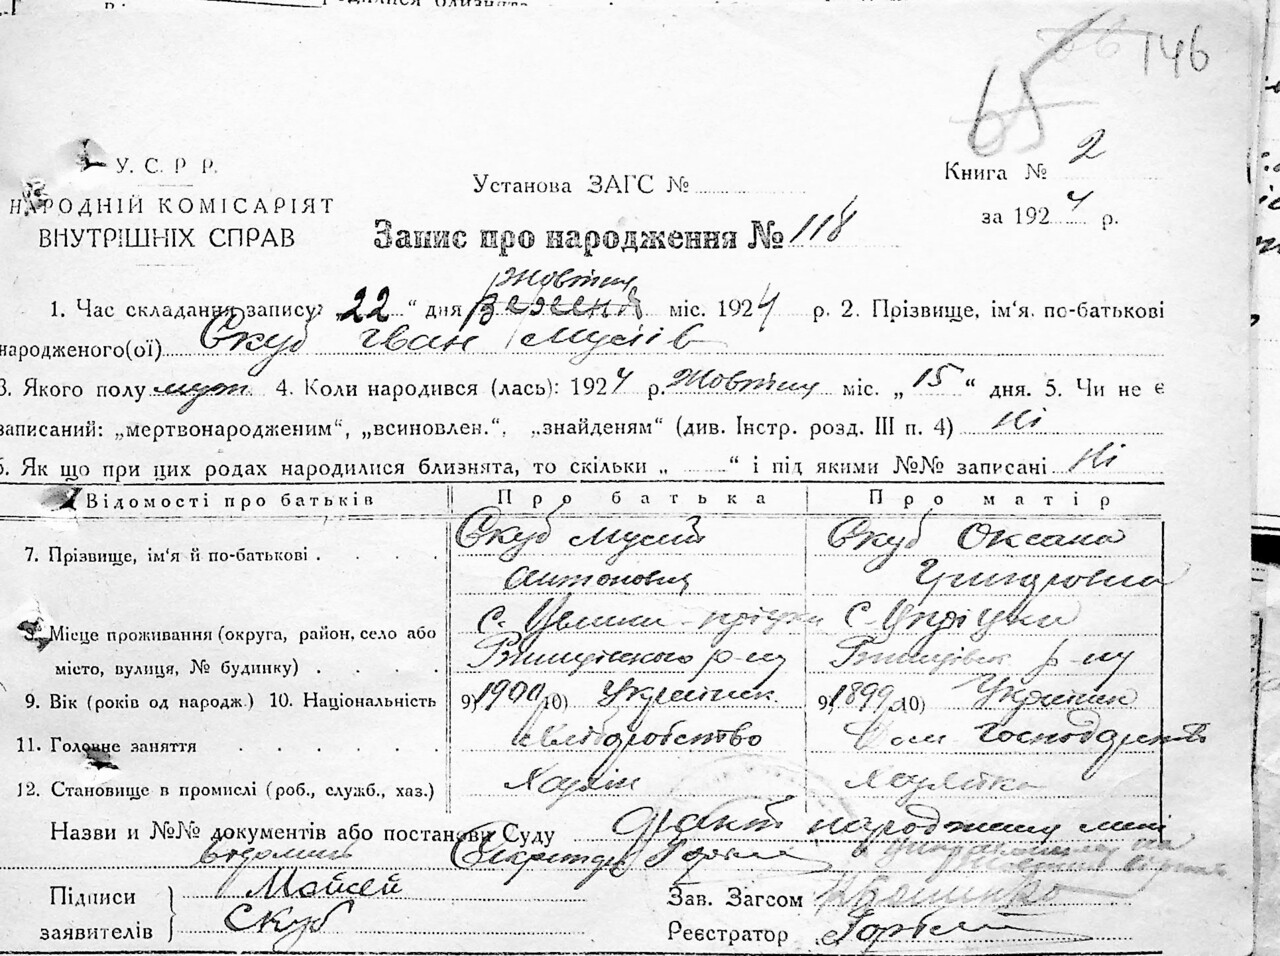 65 146
У. С. Р Р.
НАРОДНІЙ КОМІСАРІЯТ
ВНУТРІШНІХ СПРАВ
Установа ЗАГС №
Книга № 2
за 1924 р.
Запис про народження № 118
Жовтня
1. Час складання запису: „22“ дня міс. 1924 р. 2. Прізвище, ім'я, по-батькові
народженого(ої) Скуб Іван Мусіїв
3. Якого полу муж. 4. Коли народився (лась): 1924 р. Жовтня міс. „15“ дня. 5. Чи не є
записаний: „мертвонародженим“, „всиновлен.“, „знайденям“ (див. Інстр. розд. III п. 4) Ні
6. Як що при цих родах народилися близнята, то скільки „ “ і під якими №№ записані Ні
Відомості про батьків Про батька Про матір
7. Прізвище, ім'я й по-батькові . . . . Скуб Мусій Скуб Оксана
Антонович
Місце проживання (округа, район, село або с. с.
місто, вулиця, № будинку) . . . . р-ну р-ну
9. Вік (років од народж.) 10. Національність 9) 1900 10) Українец. 9) 1899 10) Українк
11. Головне заняття . . . . . . Хліборобство Дом. Господарств
12. Становище в промислі (роб., служб., хаз.) Хазяїн Хазяйка
Назви и №№ документів або постанови Суду Факт народження мені
відомий Секретар
Підписи заявителів Мойсей Скуб
Зав. Загсом
Реєстратор